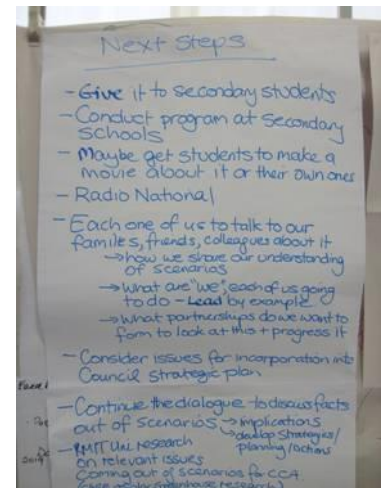 Next Steps
- Give it to secondary students
- Conduct program at Secondary
schools
- Maybe get students to make a
movie about it or their own ones
- Radio National
- Each one of us to talk to our
familes, friends, colleagues about it
→ how we share our understanding
of scenarios
→ What are "we", each of us going
to do - Lead by example
→ what partnerships do we want to
form to look at this + progress it
- Consider issues for incorporation into
Council strategic plan
- Continue the dialogue to discuss facts
out of scenarios → implications
→ develop strategies/
planning/actions
- RMIT Uni research
on relevant issues
coming out of scenarios for CCA